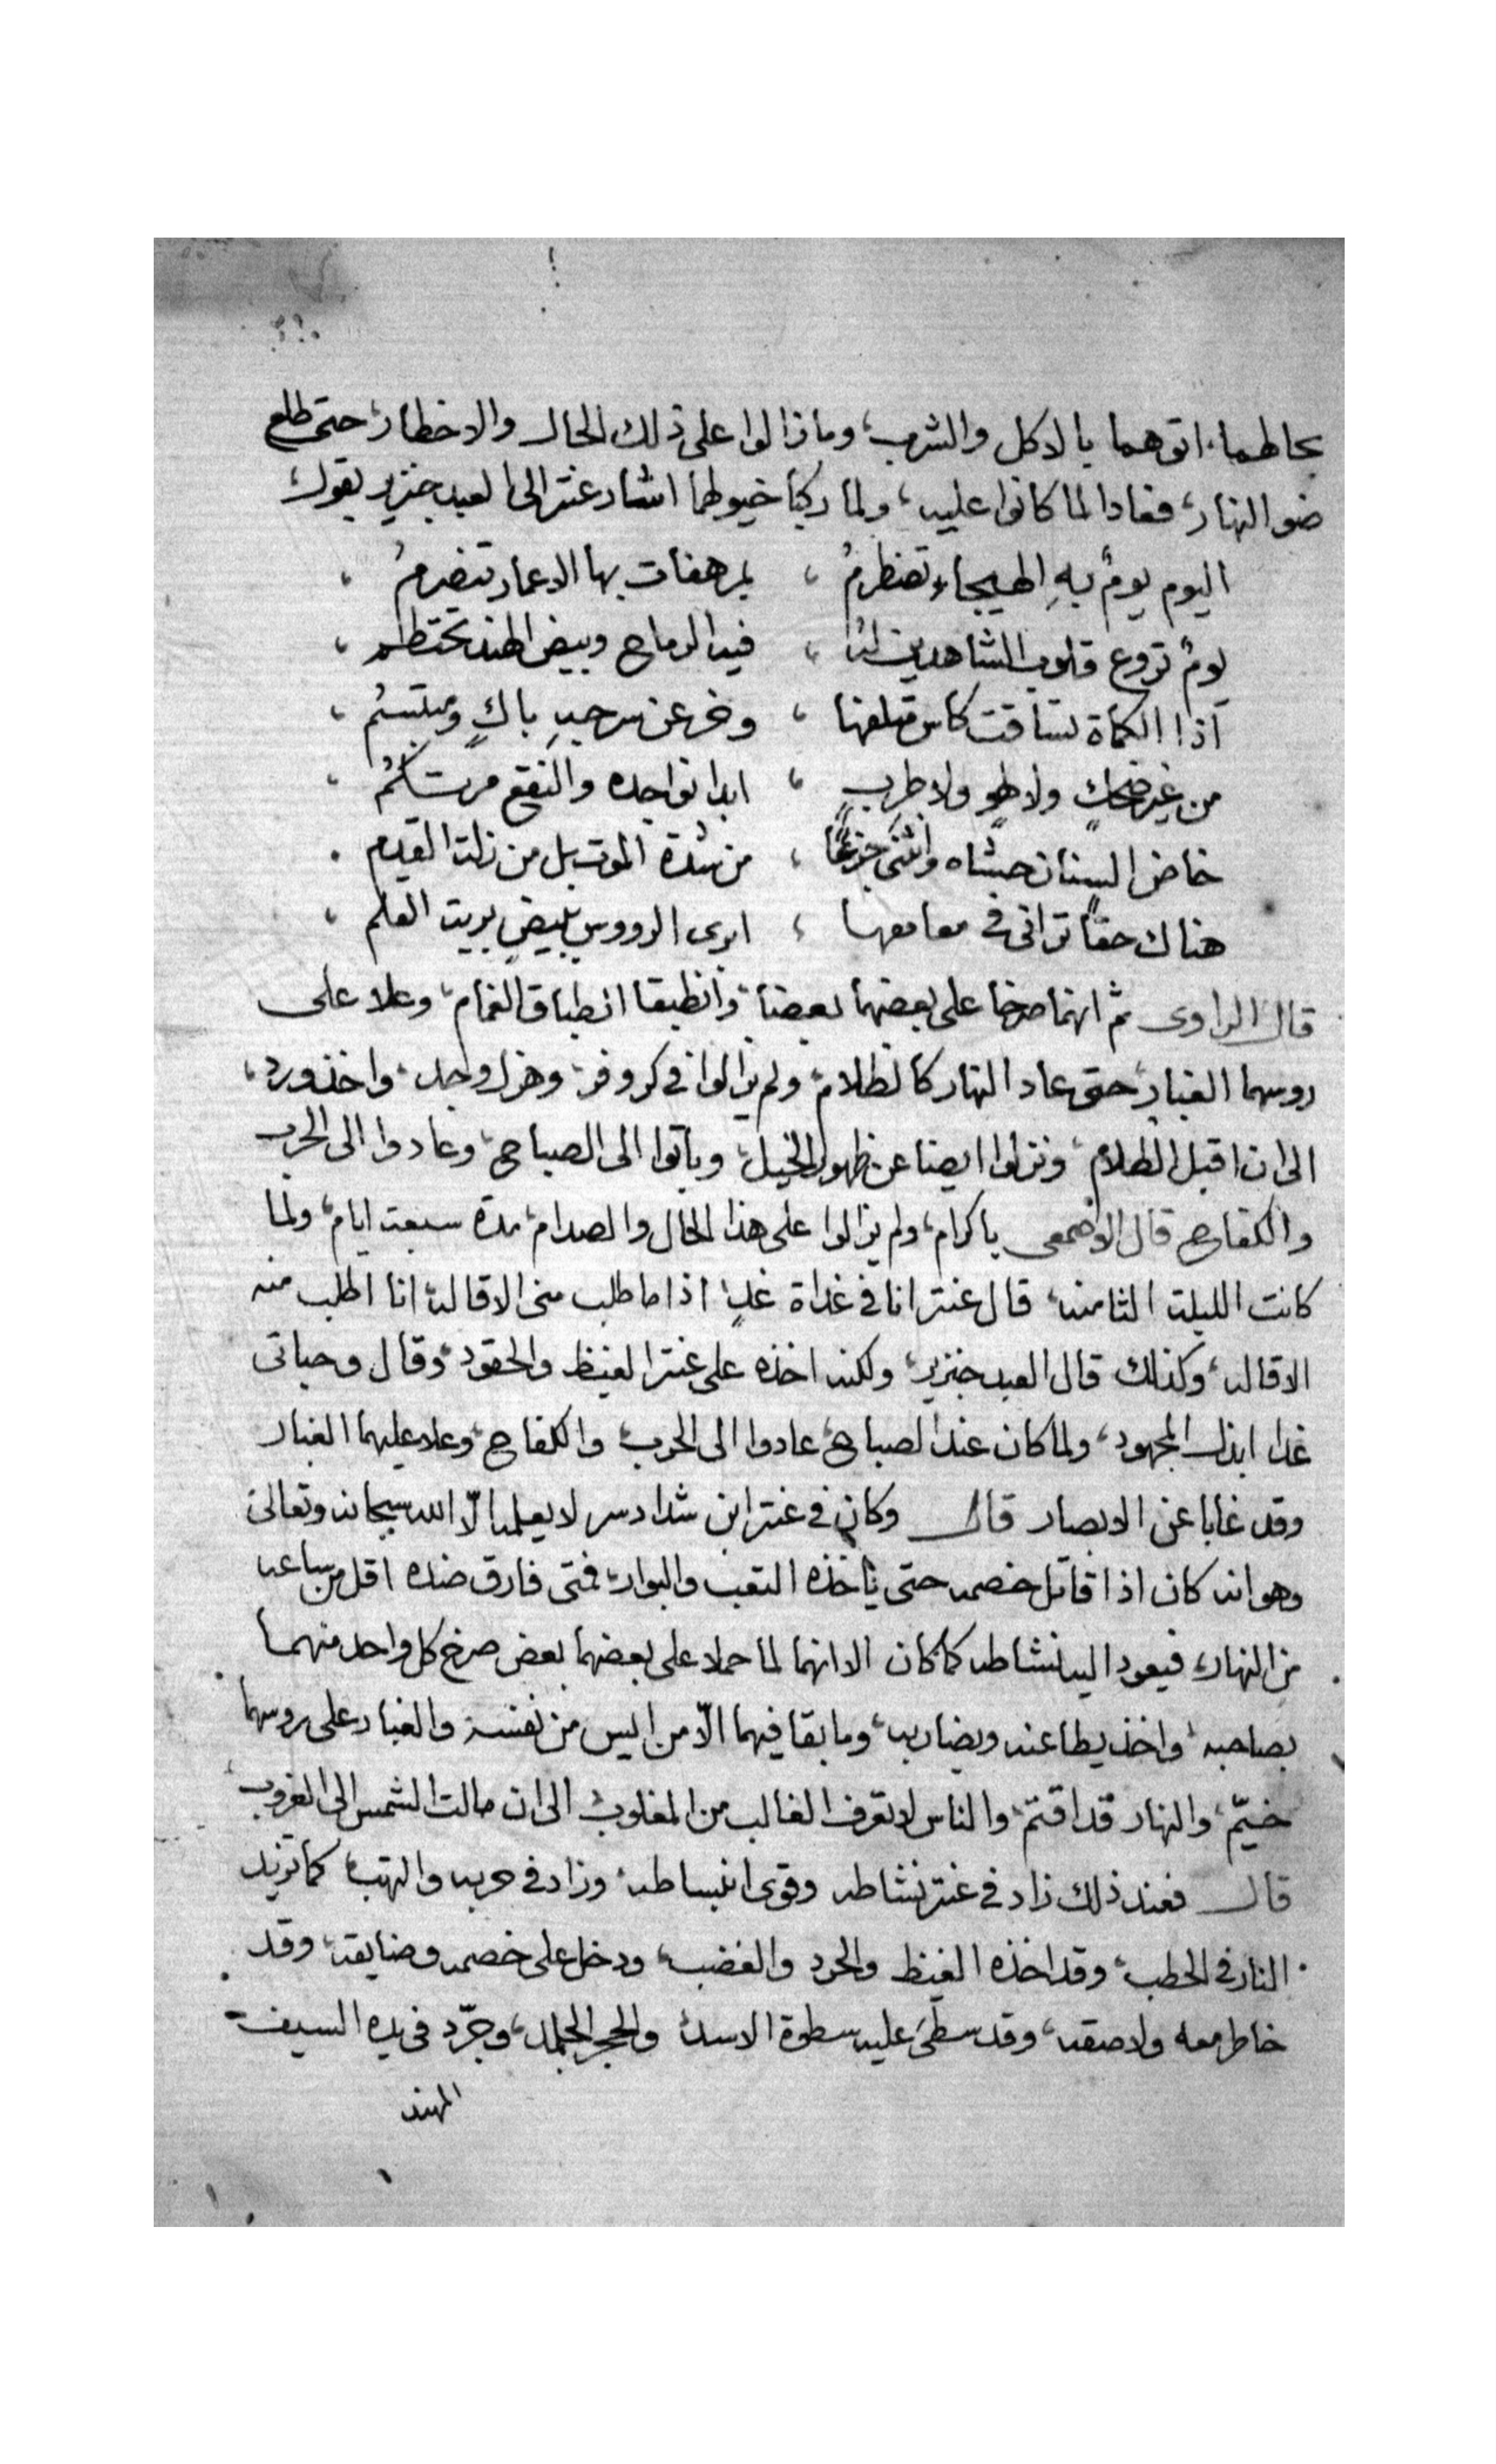 بحالهما، اتوهما بالاكل والشرب، وما زالوا على ذلك الحال والاخطار، حتى طلع
ضو النهار، فعادا لما كانوا عليه، ولما ركبا خيولهما اشار عنتر الى العبد خنزير يقول،
اليوم يومٌ بهِ الهيجاء تضطرمُ ، بمرهفات بها الاعمار تنصرمُ ،
يومٌ تروع قلوب الشاهدين لنا ، فيه الرماح وبيض الهند تحتطم ،
اذا الكماة تساقت كاس متلفها ، وخر عن سرجهِ باكٍ ومبتسمُ ،
من غير ضحكٍ ولا لهوٍ ولا طربٍ ، ابدا نواجده والنقع مرتكمُ ،
خاض السنان حشاه وانثنى جزعًا ، من شدة الموت بل من زلت القدم .
هناك حقاً ترانى فى معامعها ، ابرى الرووس ببيضٍ بريت القلم ،
قال الراوى ثم انهما صرخا على بعضهما بعضا، وانطبقا انطباق الغمام، وعلا على
روسهما الغبار، حتى عاد النهار كالظلام، ولم يزالوا فى كر وفر، وهزل وجد، واخذ ورد،
الى ان اقبل الظلام، ونزلوا ايضا عن ظهور الخيل، وباتوا الى الصباح، وعادوا الى الحرب
والكفاح قال الاصمعى ياكرام، ولم يزالوا على هذا الحال والصدام، مدة سبعت ايام، ولما
كانت الليلة الثامنه، قال عنتر انا فى غداة غدٍ اذا ما طلب منى الاقاله، انا اطلب منه
الاقاله، وكذلك قال العبد خنزير، ولكنه اخذه على عنتر الغيظ والحقود، وقال وحياتى
غدا ابذل المجهود، ولما كان عند الصباح، عادوا الى الحرب، والكفاح، وعلا عليهما الغبار
وقد غابا عن الابصار قال وكان فى عنتر ابن شداد سر لا يعلمه الّا الله سبحانه وتعالى
وهو انه كان اذا قاتل خصمه حتى ياخذه التعب والبوار، فمتى فارق ضده اقل من ساعه
من النهار، فيعود اليه نشاطه كما كان الا انهما لما حملا على بعضهما بعض صرخ كل واحد منهما
بصاحبه، واخذ يطاعنه ويضاربه، وما بقا فيهما الّا من ايس من نفسه والغبار على روسهما
خيّم، والنهار قد اقتم، والناس لا تعرف الغالب من المغلوب، الى ان مالت الشمس الى الغروب،
قال فعند ذلك زاد فى عنتر نشاطه وقوى انبساطه، وزاد فى حربه والتهب، كما تزيد
النار فى الحطب، وقد اخذه الغيظ والحرد والغضب، ودخل على خصمه وضايقه، وقد
خاطر معه ولاصقه، وقد سطى عليه سطوة الاسد، والحجر الجلمد، وجرّد فى يده السيف
المهند